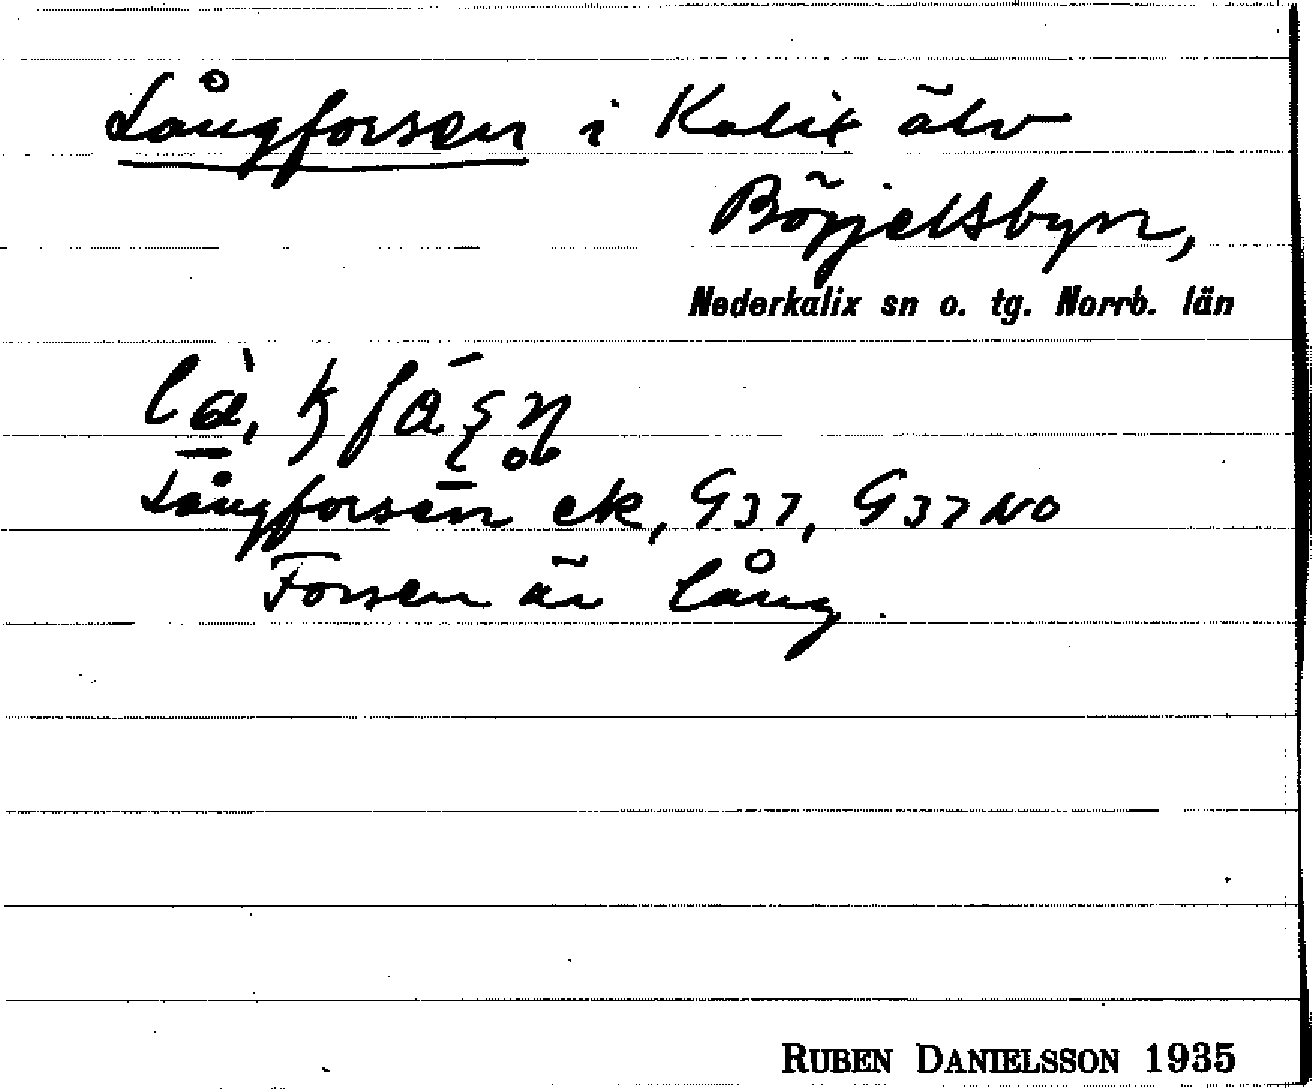 Långforsen i Kalix älv
Börjelsbyn,
Nederkalix sn o. tg. Norrb. län
Långforsen ek, G37, G37NO
Forsen är lång.
RUBEN DANIELSSON 1935